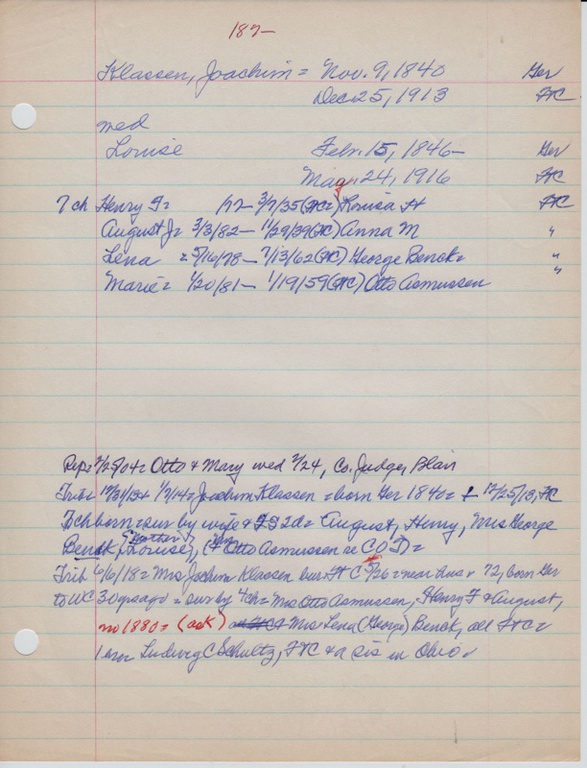 187-
Klassen, Joachim = Nov. 9, 1840 Ger
Dec 25, 1913 FC
wed
Louise Febr. 15, 1846- Ger
May 24, 1916 FC
7 ch Henry F= /72- 3/7/35 (FC=) Louisa H FC
August J= 3/3/82- 1/29/39 (FC) Anna M "
Lena = 5/16/78- 7/13/62 (FC) George Benck= "
Marie= 1/20/81- 1/19/59 (FC) Otto Asmussen "
Rep= 2/25/04= Otto & Mary wed 2/24, Co. Judge, Blair
Trib= 12/31/13 & 1/7/14= Joachim Klassen = born Ger 1840= 12/25/13, FC
7 ch born = sur by wife & 2S 2d= August, Henry, Mrs George
Benck (Louise), (& Otto Asmussen
Trib 6/6/18= Mrs Jochim Klassen bur Ft C 5/26= near hus & 72, born Ger
to WC 30 yrs ago = sur by 4 ch= Mrs Otto Asmussen, Henry F & August,
no 1880= (ask) Mrs Lena (George) Benck, all FtC=
Ludwig C Schultz, FtC & a sis in Ohio=